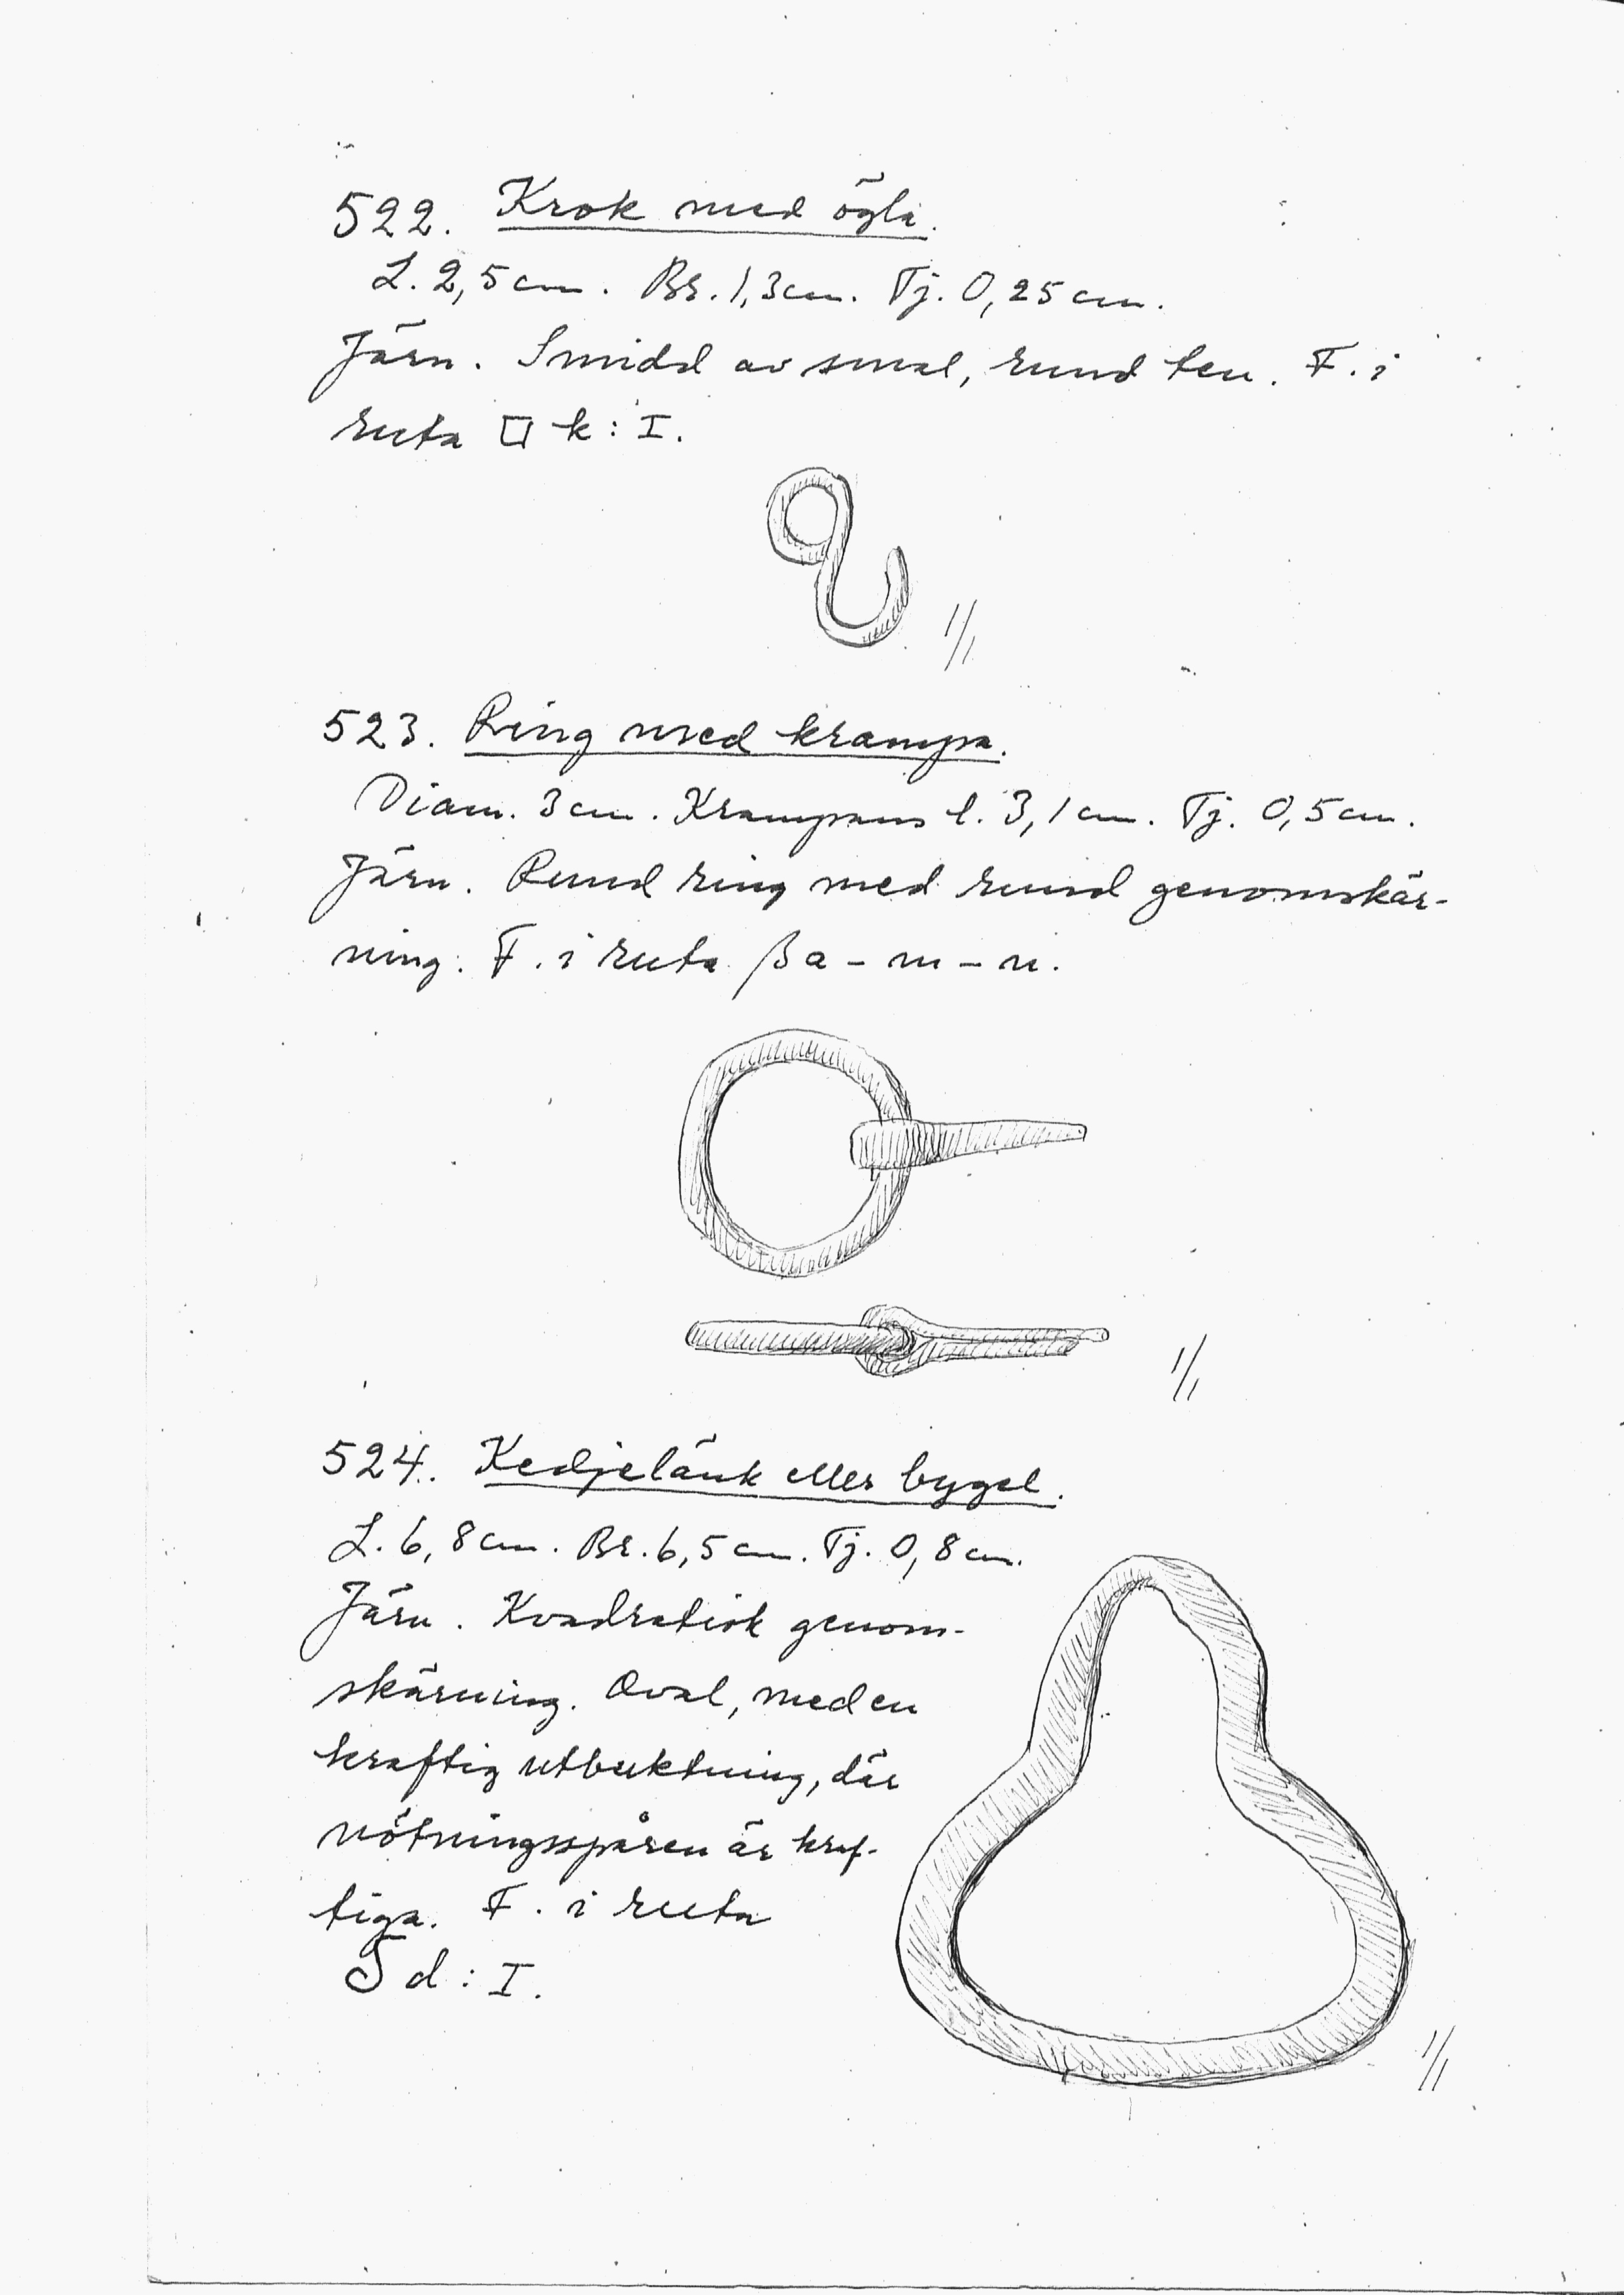 522. Krok med ögla.
L. 2,5 cm. Br. 1,3 cm. Tj. 0,25 cm.
Järn. Smidd av smal, rund ten. F. i
ruta k: I.
1/1
523. Ring med krampa.
Diam. 3 cm. Krampans l. 3,1 cm. Tj. 0,5 cm.
Järn. Rund ring med rund genomskär-
ning. F. i ruta βa - m - n.
1/1
524. Kedjelänk eller bygel.
L. 6,8 cm. Br. 6,5 cm. Tj. 0,8 cm.
Järn. Kvadratisk genom-
skärning. Oval, med en
kraftig utbuktning, där
nötningsspåren är kraf-
tiga. F. i ruta
d: I.
1/1